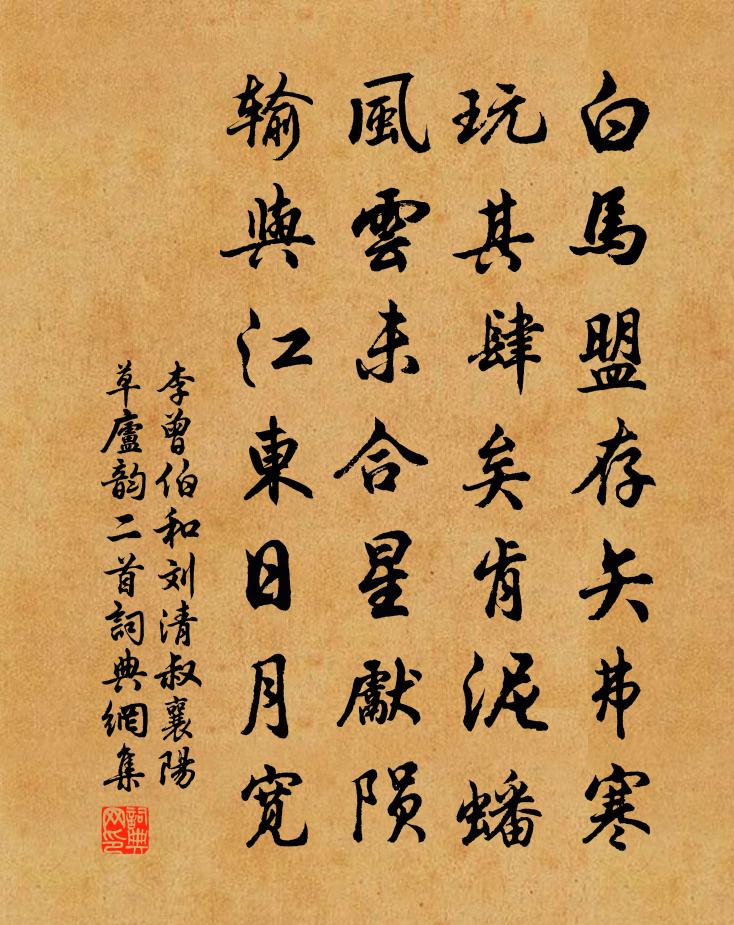 白馬盟存矢弗寒
玩其肆矣肯泥蟠
風雲未合星獻隕
輸與江東日月寬
李曾伯和刘清叔襄陽
草廬韵二首詞典網集
詞典网印